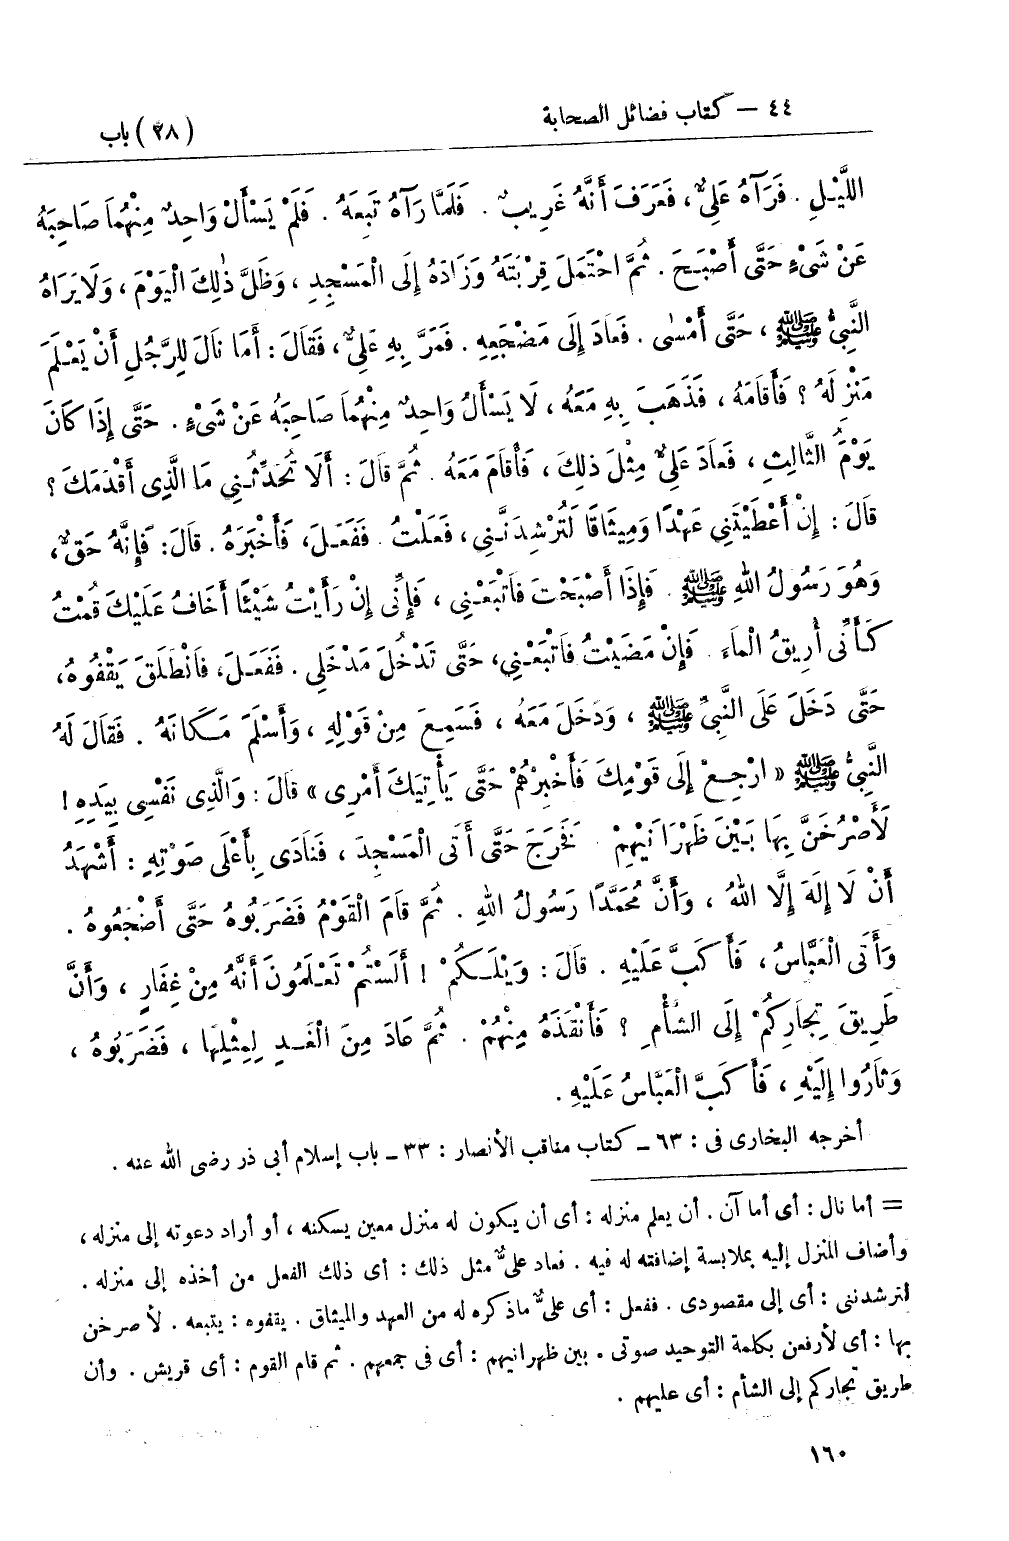 ٤٤ – كتاب فضائل الصحابة
(٢٨) باب
اللَّيْلِ . فَرَآهُ عَلِيٌّ، فَعَرَفَ أَنَّهُ غَرِيبٌ . فَلَمَّا رَآهُ تَبِعَهُ . فَلَمْ يَسْأَلْ وَاحِدٌ مِنْهُمَا صَاحِبَهُ
عَنْ شَىْءٍ حَتَّى أَصْبَحَ . ثُمَّ احْتَمَلَ قِرْبَتَهُ وَزَادَهُ إِلَى الْمَسْجِدِ ، وَظَلَّ ذٰلِكَ الْيَوْمَ ، وَلَا يَرَاهُ
النَّبِىُّ ﷺ ، حَتَّى أَمْسٰى . فَعَادَ إِلَى مَضْجَعِهِ . فَمَرَّ بِهِ عَلِيٌّ، فَقَالَ : أَمَا نَالَ لِلرَّجُلِ أَنْ يَعْلَمَ
مَنْزِلَهُ ؟ فَأَقَامَهُ ، فَذَهَبَ بِهِ مَعَهُ ، لَا يَسْأَلُ وَاحِدٌ مِنْهُمَا صَاحِبَهُ عَنْ شَىْءٍ . حَتَّى إِذَا كَانَ
يَوْمُ الثَّالِثِ ، فَعَادَ عَلِيٌّ مِثْلَ ذٰلِكَ ، فَأَقَامَ مَعَهُ . ثُمَّ قَالَ : أَلَا تُحَدِّثُنِي مَا الَّذِى أَقْدَمَكَ ؟
قَالَ : إِنْ أَعْطَيْتَنِي عَهْدًا وَمِيثَاقًا لَتُرْشِدَنَّنِي ، فَعَلْتُ . فَفَعَلَ، فَأَخْبَرَهُ . قَالَ: فَإِنَّهُ حَقٌّ،
وَهُوَ رَسُولُ اللهِ ﷺ . فَإِذَا أَصْبَحْتَ فَاتْبَعْنِي ، فَإِنِّى إِنْ رَأَيْتُ شَيْئًا أَخَافُ عَلَيْكَ قُمْتُ
كَأَنِّى أُرِيقُ الْمَاءَ . فَإِنْ مَضَيْتُ فَاتْبَعْنِي، حَتَّى تَدْخُلَ مَدْخَلِى . فَفَعَلَ، فَانْطَلَقَ يَقْفُوهُ،
حَتَّى دَخَلَ عَلَى النَّبِىِّ ﷺ ، وَدَخَلَ مَعَهُ ، فَسَمِعَ مِنْ قَوْلِهِ ، وَأَسْلَمَ مَكَانَهُ . فَقَالَ لَهُ
النَّبِىُّ ﷺ « ارْجِعْ إِلَى قَوْمِكَ فَأَخْبِرْهُمْ حَتَّى يَأْتِيَكَ أَمْرِى » قَالَ : وَالَّذِى نَفْسِى بِيَدِهِ !
لَأَصْرُخَنَّ بِهَا بَيْنَ ظَهْرَانَيْهِمْ . فَخَرَجَ حَتَّى أَتَى الْمَسْجِدَ ، فَنَادَى بِأَعْلَى صَوْتِهِ : أَشْهَدُ
أَنْ لَا إِلَهَ إِلَّا اللهُ ، وَأَنَّ مُحَمَّدًا رَسُولُ اللهِ . ثُمَّ قَامَ الْقَوْمُ فَضَرَبُوهُ حَتَّى أَضْجَعُوهُ .
وَأَتَى الْعَبَّاسُ ، فَأَكَبَّ عَلَيْهِ . قَالَ : وَيْلَكُمْ ! أَلَسْتُمْ تَعْلَمُونَ أَنَّهُ مِنْ غِفَارٍ ، وَأَنَّ
طَرِيقَ تِجَارِكُمْ إِلَى الشَّأْمِ ؟ فَأَنْقَذَهُ مِنْهُمْ . ثُمَّ عَادَ مِنَ الْغَدِ لِمِثْلِهَا ، فَضَرَبُوهُ ،
وَثَارُوا إِلَيْهِ ، فَأَكَبَّ الْعَبَّاسُ عَلَيْهِ .
أخرجه البخارى فى : ٦٣ ـ كتاب مناقب الأنصار : ٣٣ ـ باب إسلام أبى ذر رضى الله عنه .
= أما نال : أى أما آن . أن يعلم منزله : أى أن يكون له منزل معين يسكنه ، أو أراد دعوته إلى منزله ،
وأضاف المنزل إليه بملابسة إضافته له فيه . فعاد علىٌّ مثل ذلك : أى ذلك الفعل من أخذه إلى منزله .
لترشدننى : أى إلى مقصودى . ففعل : أى علىٌّ ماذكره له من العهد والميثاق . يقفوه : يتبعه . لأصرخن
بها : أى لأرفعن بكلمة التوحيد صوتى . بين ظهرانيهم : أى فى جمعهم . ثم قام القوم : أى قريش . وأن
طريق تجاركم إلى الشأم : أى عليهم .
١٦٠